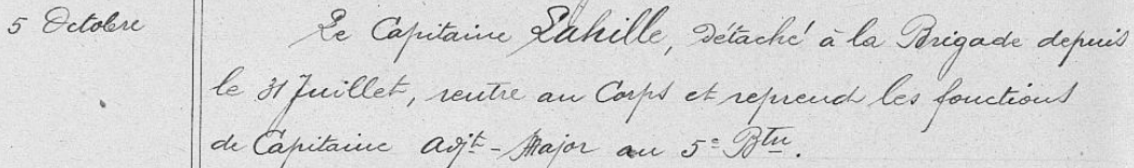 5 Octobre
Le Capitaine Lahille, détaché à la Brigade depuis
le 31 Juillet, rentre au Corps et reprend les fonctions
de Capitaine adjt-Major au 5e Btn.